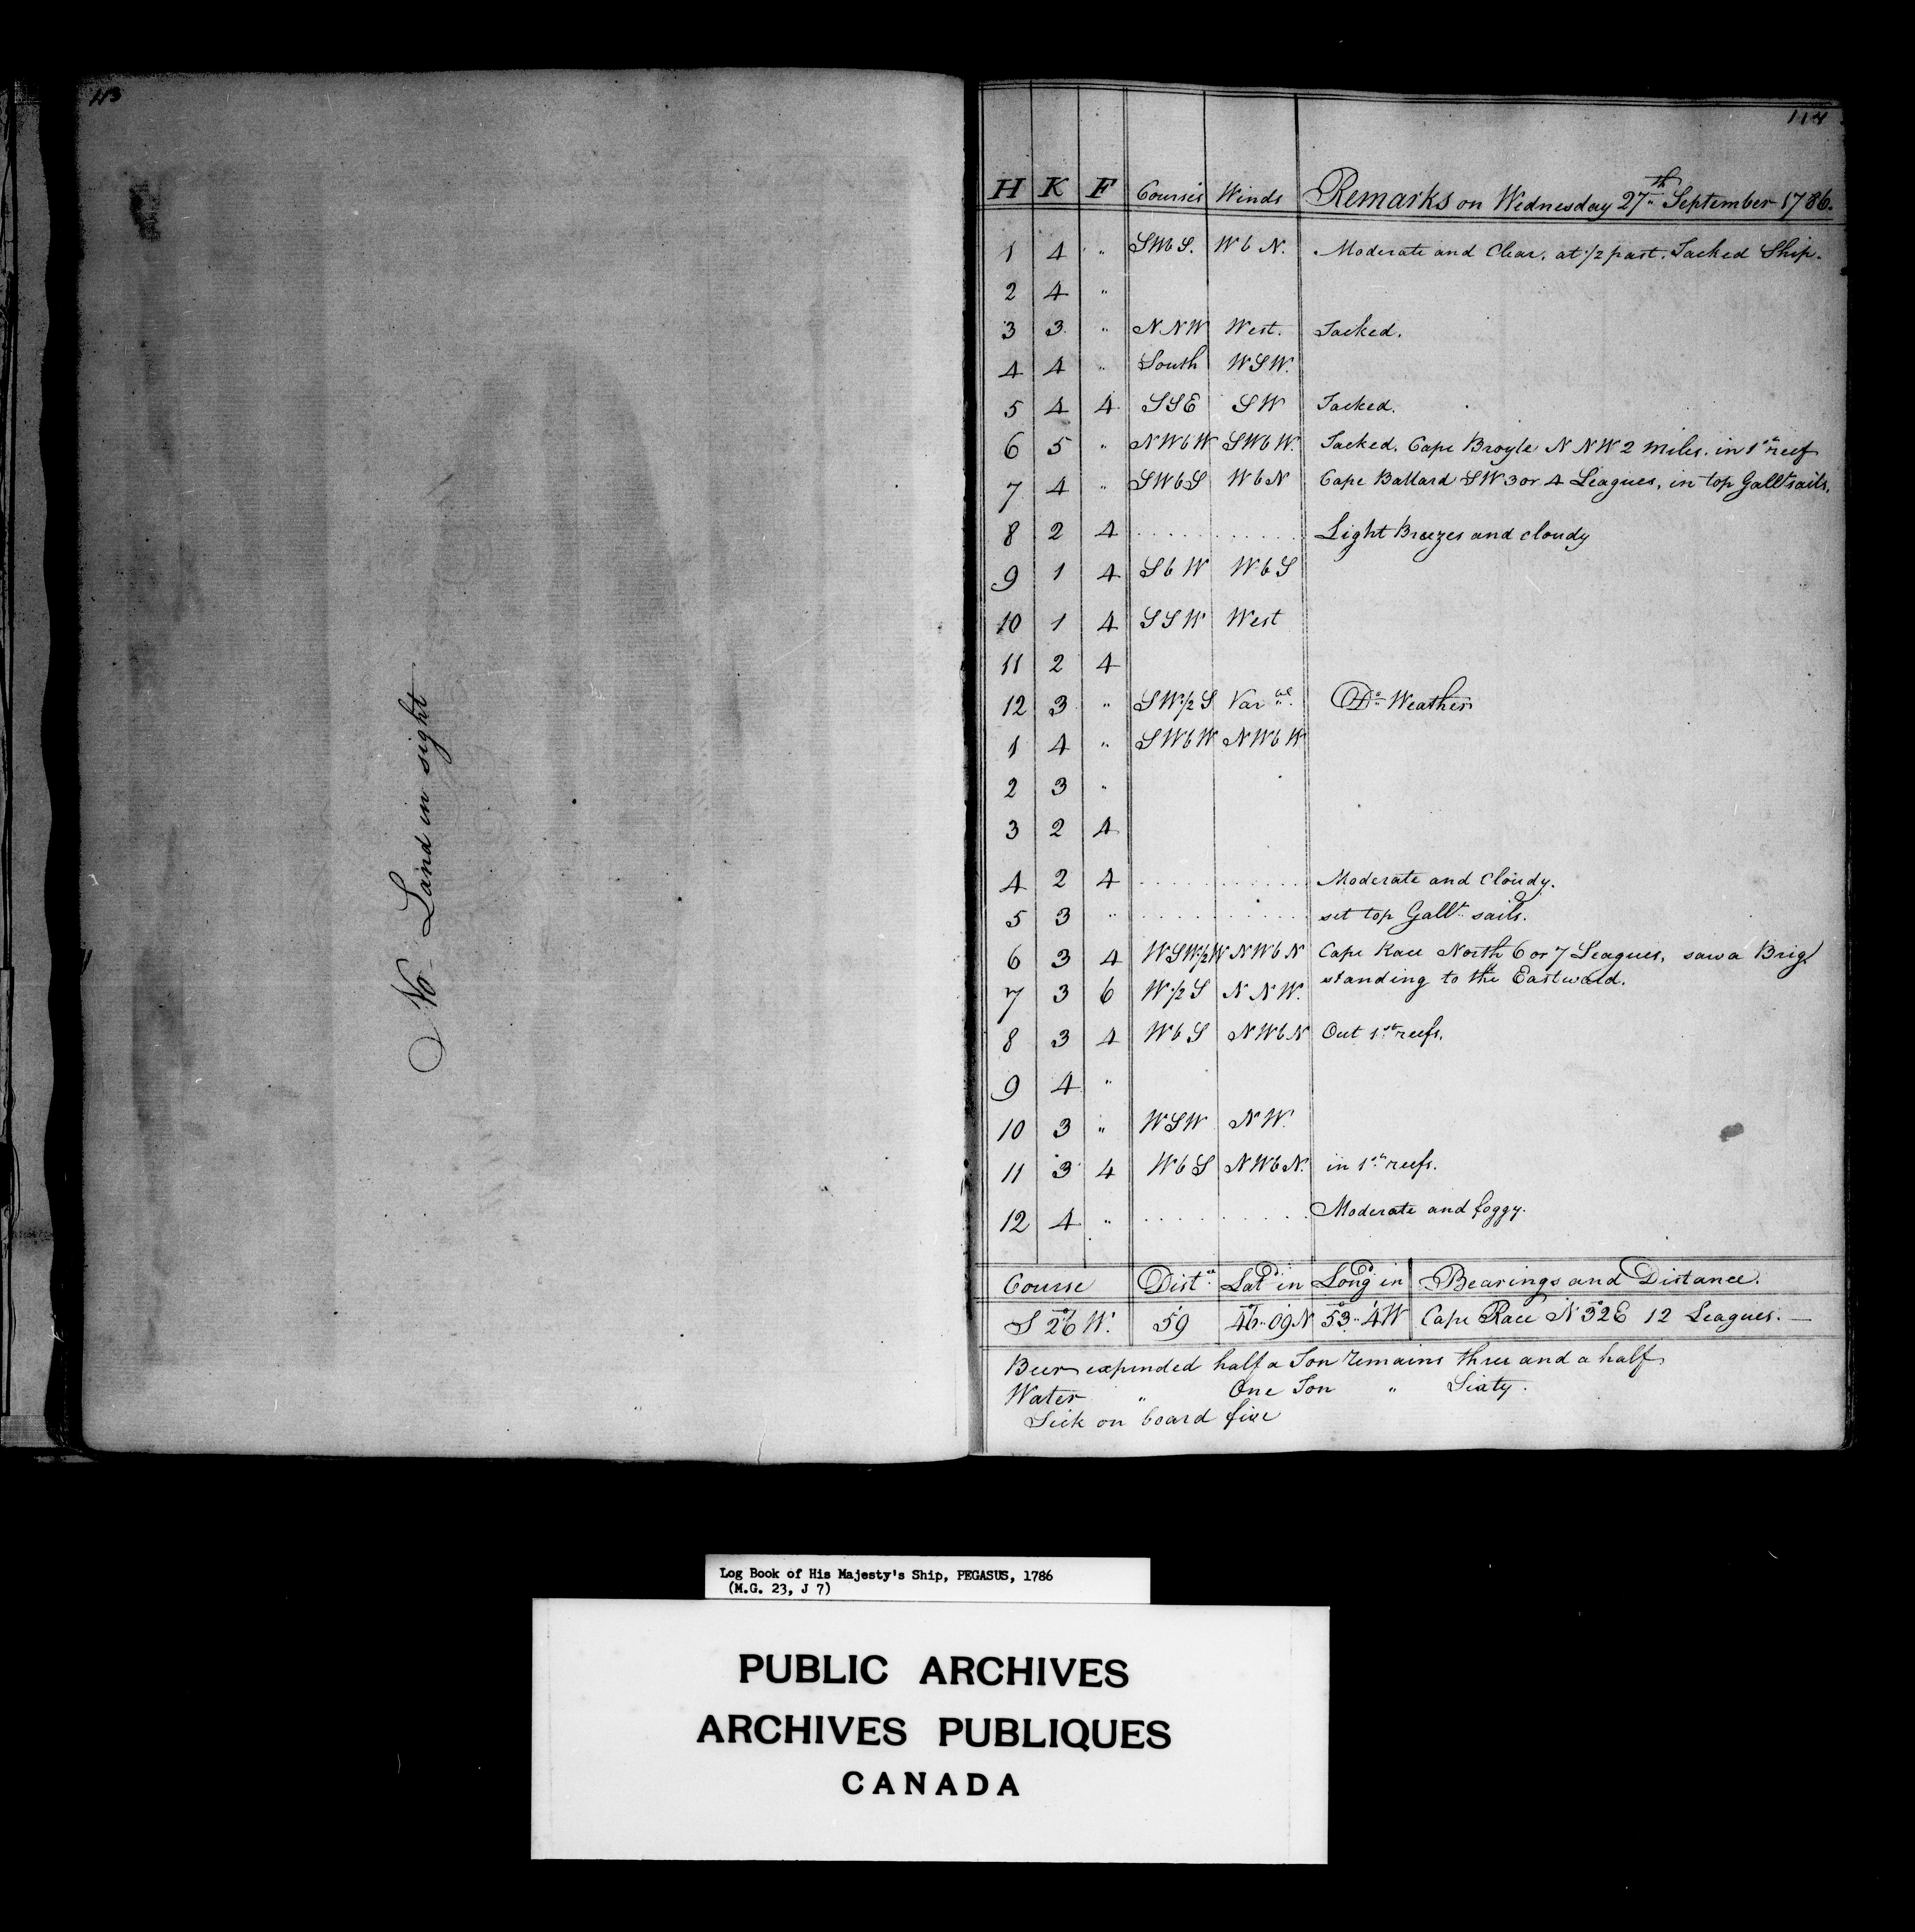 113
No Land in sight
114
H K F Courses Winds Remarks on Wednesday 27th September 1786.
1 4 " SWbS. WbN. Moderate and Clear. at 1/2 past. Tacked Ship.
2 4 "
3 3 " NNW West. Tacked.
4 4 " South WSW.
5 4 4 SSE SW Tacked.
6 5 " NWbW SWbW. Tacked. Cape Broyle NNW 2 miles. in 1st reef
7 4 " SWbS WbN Cape Ballard SW 3 or 4 Leagues, in top Gallt sails.
8 2 4 . . . . . . . . . . . Light Breezes and cloudy
9 1 4 SbW WbS
10 1 4 SSW West
11 2 4
12 3 " SW1/2S Varbl. Do Weather
1 4 " SWbW NWbW
2 3 "
3 2 4
4 2 4 . . . . . . . . . . . Moderate and Cloudy.
5 3 " . . . . . . . . . . . set top Gallt sails.
6 3 4 WSW1/2W NWbN Cape Race North 6 or 7 Leagues, saw a Brig
standing to the Eastward.
7 3 6 W1/2S NNW.
8 3 4 WbS NWbN Out 1st reefs.
9 4 "
10 3 " WSW NW.
11 3 4 WbS NWbN. in 1st reefs.
12 4 " . . . . . . . . . Moderate and foggy.
Course Distce Latd in Longd in Bearings and Distance.
S 26° W. 59 46°..09 N 53°..4 W Cape Race N 32° E 12 Leagues. —
Beer expended half a Ton remains three and a half
Water " One Ton " Sixty.
Sick on board five
Log Book of His Majesty's Ship, PEGASUS, 1786
(M.G. 23, J 7)
PUBLIC ARCHIVES
ARCHIVES PUBLIQUES
CANADA